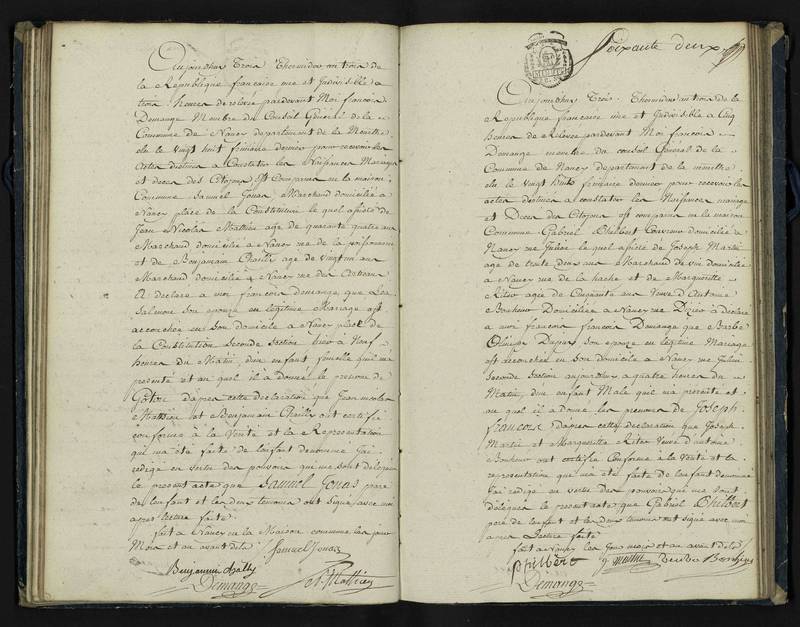 Aujourdhuy Trois Thermidor an trois de
la Republique francaise une et Indivisible a
trois heures de relevée pardevant Moi francois
Demange Membre du Conseil Général de la
Commune de Nancy departement de la Meurthe
elu le vingt huit frimaire dernier pour recevoir les
actes destinés a Constater les Naissances Mariages
et deces des Citoyens Est Comparu en la maison
Commune Samuel Jonas Marchand domicilié a
Nancy place de la Constitution le quel assisté de
Jean Nicolas Matthieu agé de quarante quatre ans
Marchand domicilié a Nancy rue de la poissonnerie
et de Benjamin Chailly agé de vingt un ans
Marchand domicilié a Nancy rue des
A declaré a moi francois demange que
Salmon son epouse en légitime Mariage est
accouchée en son domicile a Nancy place de
la Constitution seconde section hier a Neuf
heures du Matin, d'un enfant femelle quil ma
presenté et au quel il a donné le prenom de
Goton dapres cette declaration que Jean nicolas
Matthieu et Benjamin Chailly ont certifié
conforme a la Verité et la Representation
qui ma été faite de lenfant denommé jai
redigé en vertu des pouvoirs qui me sont delegués
le present acte que Samuel Jonas pere
de lenfant et les deux temoins ont signé avec moi
apres lecture faite
fait a Nancy en la Maison commune les jour
Mois et an avant dits
Samuel Jonas
Benjamin Chally
Demange
N Mathieu
Soixante deux
Aujourdhuy Trois Thermidor an trois de la
Republique francaise une et Indivisible a Cinq
heures de Relevée pardevant Moi francois
Demange membre du conseil Général de la
Commune de Nancy departement de la meurthe
elu le vingt huit frimaire dernier pour recevoir les
actes destinés a constater les Naissances mariages
et Deces des Citoyens est comparu en la maison
Commune Gabriel Philbert domicilié a
Nancy rue le quel assisté de Joseph Martin
agé de trente deux ans Marchand de vin domicilié
a Nancy rue de la hache et de Marguerite
Riter agée de Cinquante ans Veuve d'Antoine
Bonheur Domiciliée a Nancy rue Dizier a declaré
a moi francois francois Demange que Barbe
son epouse en légitime Mariage
est accouchée en son Domicile a Nancy rue
seconde section aujourdhuy a quatre heures du
Matin, d'un enfant Male quil ma presenté et
au quel il a donné les prenoms de Joseph
francois dapres cette declaration que Joseph
Martin et Marguerite Riter veuve d'antoine
Bonheur ont certifié Conforme a la Verité et la
representation qui ma été faite de lenfant denommé
jai redigé en vertu des pouvoirs qui me sont
delegués le present acte que Gabriel Philbert
pere de lenfant et les deux temoins ont signé avec moi
apres Lecture faite
fait a Nancy les jour mois et an avant dits
Philbert
J Martin
veuve Bonheur
Demange